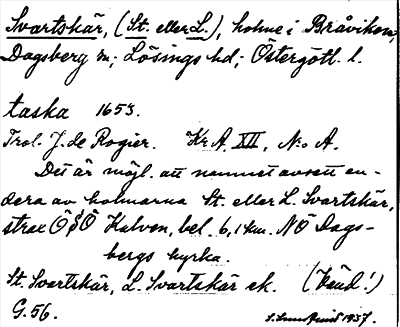 Svartskär, (St. eller L.), holme i Bråviken,
Dagsberg sn; Lösings hd; Östergötl. l.
taska 1653.
Trol. J. de Rogier. Kr A. XII, N:o A.
Det är möjl. att namnet avsett en-
dera av holmarna St. eller L. Svartskär,
strax Ö Kalven, bel. 6,1 km. NÖ Dags-
bergs kyrka.
St. Svartskär, L. Svartskär ek. (Vänd!)
G. 56. 1937.